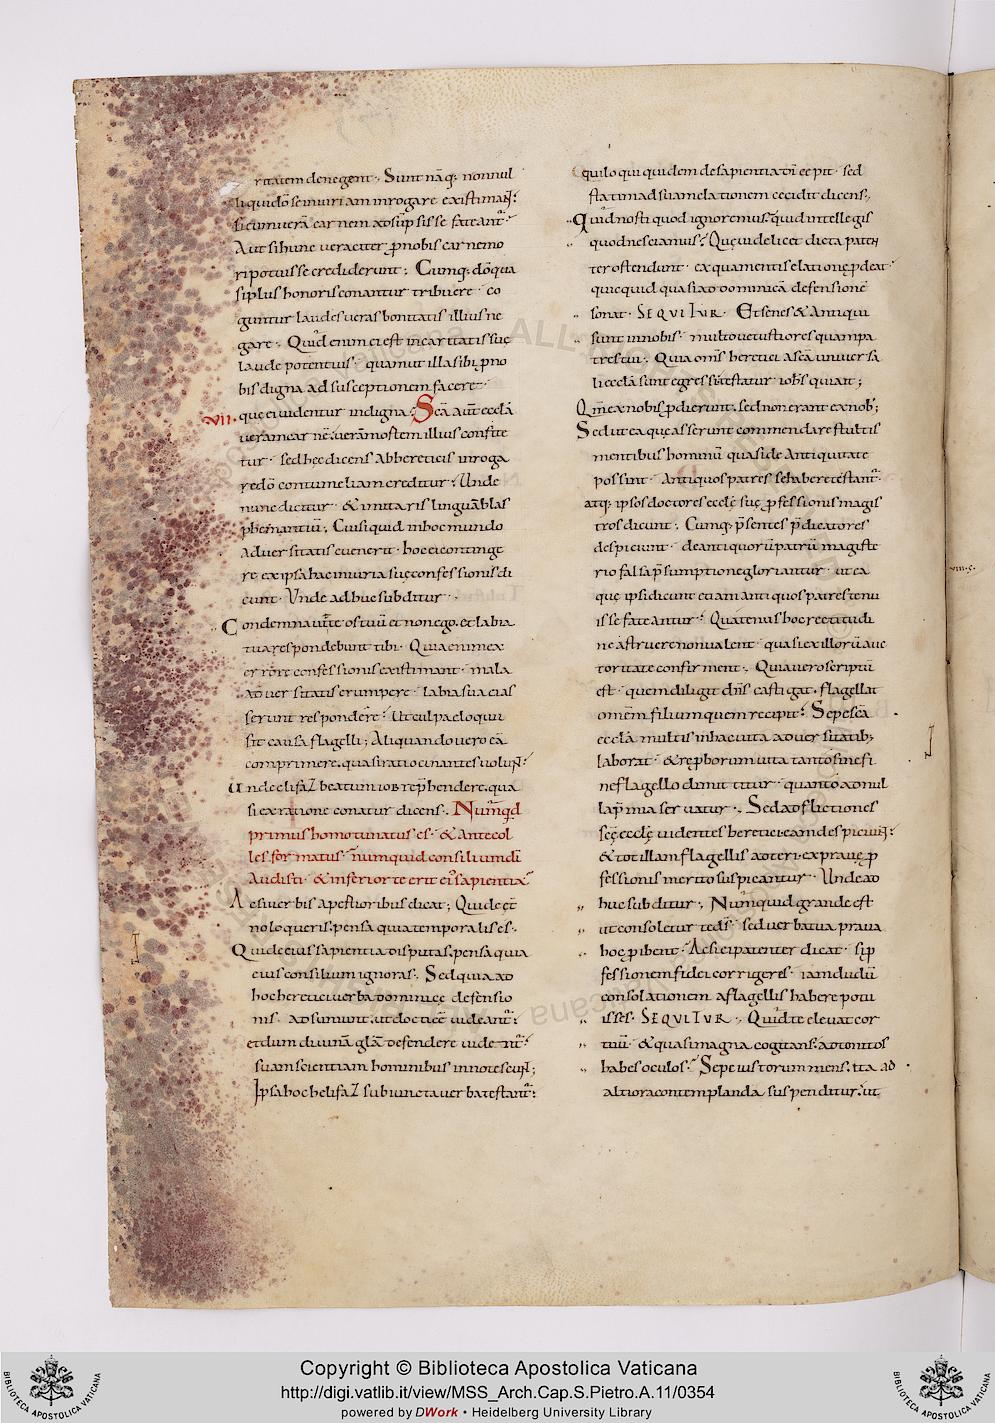 ritatem denegent. Sunt nāq; nonnul
li qui dō se iniuriam inrogare existimant:
si eum uerā carnem adsūpsisse fateant̄.
Aut si hunc ueraciter pro nobis carne mo
ri potuisse crediderunt; Cumq; dō qua
si plus honoris conantur tribuere. co
guntur laudes ueras bonitatis illius ne
gare. Quid enim ei est in caritatis suę
laude potentius. quam ut illa sibi p̄ no
bis digna ad susceptionem faceret
VII. que ei uidentur indigna. Scā aūt ecclā
ueram carnē. ueram mortem illius confite
tur. sed hęc dicens ab hereticis inroga
re dō contumeliam creditur. Unde
nunc dicitur. & imitaris linguā blas
phemantiū. Cui si quid in hoc mundo
aduersitatis euenerit. hoc ei contingi
re ex ipsa hac iniuria suę confessionis di
cunt. Unde adhuc subditur.
Condemnauit te os tuū et non ego. et labia
tua respondebunt tibi. Quia enim ex
errore confessionis existimant. mala
aduersitatis erumpere. labia sua ei as
serunt respondere. Ut culpa eloquii
sit causa flagelli; Aliquando uero eā
comprimere. quasi ratiocinantes uolunt:
Unde elifaZ beatum iob rep̄hendere. qua
si ex ratione conatur dicens. Numqd
primus homo tu natus es. & ante col
les formatus. numquid consilium dī
audisti. & inferior te erit ei' sapientia
Ac si uerbis apertioribus dicat; Qui de ęt
no loqueris. pensa quia temporalis es.
Qui de eius sapientia disputas. pensa quia
eius consilium ignoras. Sed quia ad
hoc heretici uerba dominicę defensio
nis. adsumunt. ut docti eē uideant̄.
et dum diuinā glā defendere uident̄.
suam scientiam hominibus innotescunt;
Ipsa hoc helifaZ subiuncta uerba testant̄:
Qui loqui quidem de sapientia dī cępit. sed
statim ad sua melationem cecidit dicens.
Quid nosti quod ignoremus. quid intellegis
quod nesciamus? Quę uidelicet dicta paten
ter ostendunt. ex qua mentis elatione p̄deat.
quicquid quasi ad dominicā defensionē
sonat. SEQUITUR. Et senes & antiqui
sunt in nobis. multo uetustiores quam pa
tres tui. Quia oms heretici a scā uniuersa
li ecclā sunt egressi. testatur iohs qui ait;
Qm ex nobis p̄dierunt. sed non erant ex nob';
Sed ut ea quę asserunt commendare stultis
mentibus hominū quasi de antiquitate
possint. Antiquos patres se habere testant̄.
atq; ipsos doctores ecclę suę p̄fessionis magis
tros dicunt. Cumq; p̄sentes p̄dicatores
despiciunt. de antiquorū patrū magiste
rio falsa p̄sumptione gloriantur. ut ea
quę ipsi dicunt etiam antiquos patres tenu
isse fateantur. Quatenus hoc rectitudi
ne astruere non ualent. quasi ex illorū auc
toritate confirment. Quia uero scriptū
est. quem diligit dn̄s castigat. flagellat
omēm filium quem recipit: Sepe scā
ecclā multis in hac uita aduersitatib;
laborat. & rep̄borum uita tanto sine si
ne flagello dimittitur. quanto ad nul
la p̄mia seruatur. Sed adflictiones
scę ecclę uidentes heretici. eam despiciunt:
& tot illam flagellis adteri. ex prauę p̄
fessionis merito suspicantur. Unde ad
huc subditur. Numquid grande est
ut consoletur te dš. sed uerba tua praua
hoc p̄ibent. Ac si cū patenter dicat. si p̄
fessionem fidei corrigeres. iamdudū
consolationem a flagellis habere potu
isses. SEQUITUR. Quid te eleuat cor
tuū. & quasi magna cogitans. adtonitos
habes oculos. Sepe iustorum mens. ita ad
altiora contemplanda suspenditur. ut
Copyright © Biblioteca Apostolica Vaticana
http://digi.vatlib.it/view/MSS_Arch.Cap.S.Pietro.A.11/0354
powered by DWork • Heidelberg University Library
BIBLIOTECA APOSTOLICA VATICANA
BIBLIOTECA APOSTOLICA VATICANA